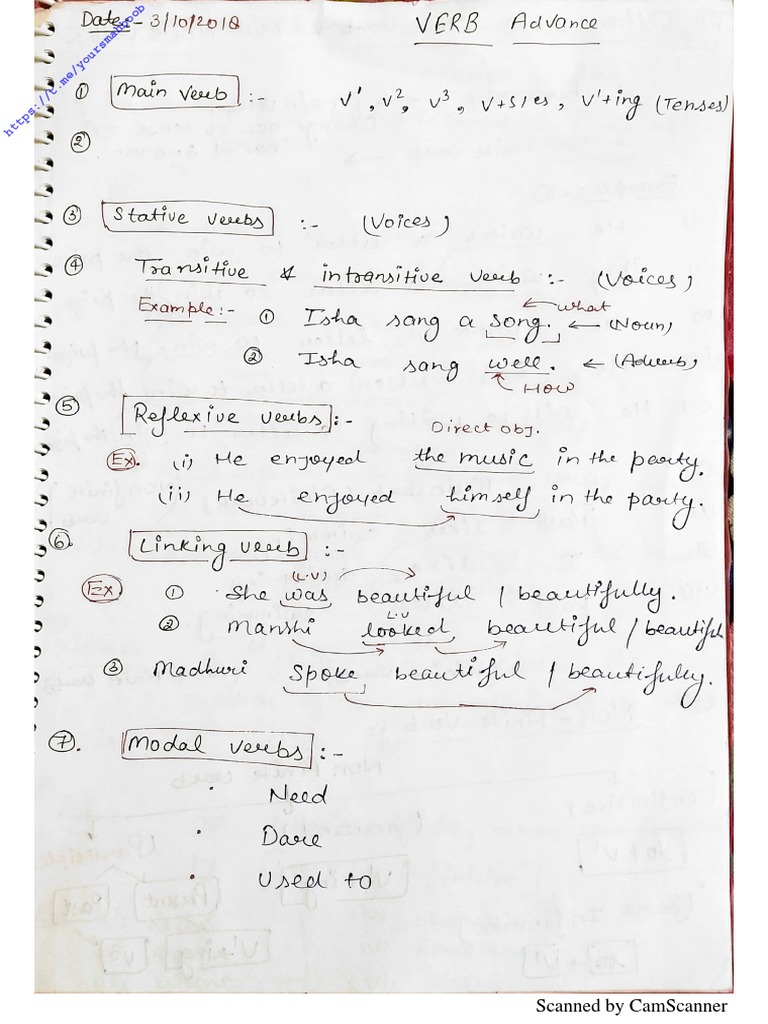 https://t.me/yoursmahboob
Date:- 3/10/2018 VERB Advance
① Main verb :- V¹, V², V³, V+S/es, V¹+ing (Tenses)
②
③ Stative verbs :- (Voices)
④ Transitive & intransitive verb :- (Voices)
what
Example :- ① Isha sang a song. ← (Noun)
② Isha sang well. ← (Adverb)
How
⑤ Reflexive verbs :-
Direct obj.
Ex. (i) He enjoyed the music in the party.
(ii) He enjoyed himself in the party.
⑥. Linking verb :-
(L.V)
Ex ① She was beautiful / beautifully.
L.V
② Manshi looked beautiful / beautiful
③ Madhuri spoke beautiful / beautifully.
⑦. Modal verbs :-
· Need
· Dare
· Used to
Scanned by CamScanner